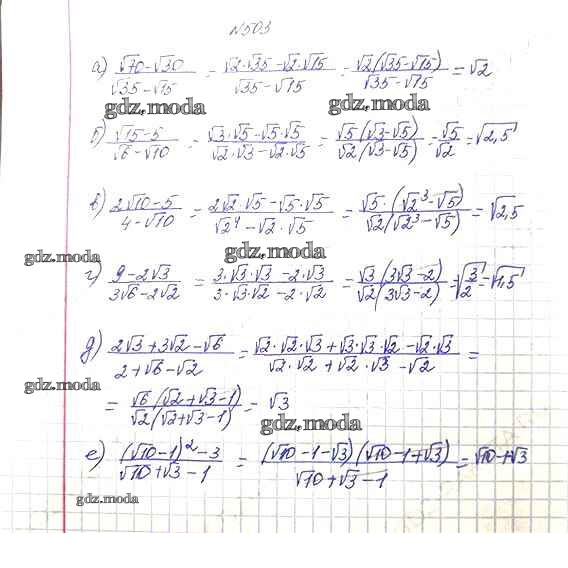 №503
а) (√70-√30)/(√35-√15) = (√2·√35-√2·√15)/(√35-√15) = (√2(√35-√15))/(√35-√15) = √2
gdz.moda gdz.moda
б) (√15-5)/(√6-√10) = (√3·√5-√5·√5)/(√2·√3-√2·√5) = (√5(√3-√5))/(√2(√3-√5)) = √5/√2 = √2,5
в) (2√10-5)/(4-√10) = (2√2·√5-√5·√5)/(√2⁴-√2·√5) = (√5·(√2³-√5))/(√2(√2³-√5)) = √2,5
gdz.moda gdz.moda
г) (9-2√3)/(3√6-2√2) = (3·√3·√3-2·√3)/(3·√3·√2-2·√2) = (√3(3√3-2))/(√2(3√3-2)) = √(3/2) = √1,5
д) (2√3+3√2-√6)/(2+√6-√2) = (√2·√2·√3+√3·√3·√2-√2·√3)/(√2·√2+√2·√3-√2) =
gdz.moda
= (√6(√2+√3-1))/(√2(√2+√3-1)) = √3
gdz.moda
е) ((√10-1)²-3)/(√10+√3-1) = ((√10-1-√3)(√10-1+√3))/(√10+√3-1) = √10-1-√3
gdz.moda